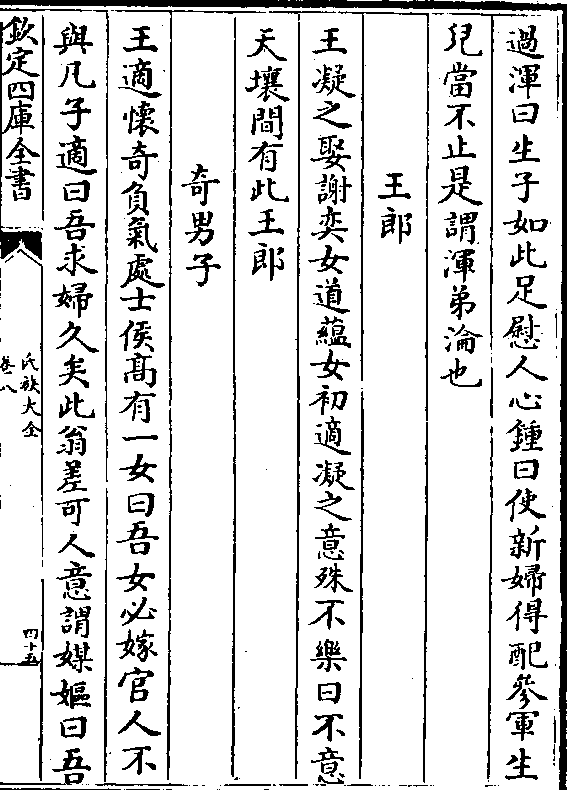 過渾曰生子如此足慰人心鍾曰使新婦得配參軍生
兒當不止是謂渾弟淪也
王郎
王凝之娶謝奕女道蘊女初適凝之意殊不樂曰不意
天壤間有此王郎
奇男子
王適懷奇負氣處士侯髙有一女曰吾女必嫁官人不
與凡子適曰吾求婦久矣此翁差可人意謂媒嫗曰吾
欽定四庫全書
氏族大全
卷八
四十五